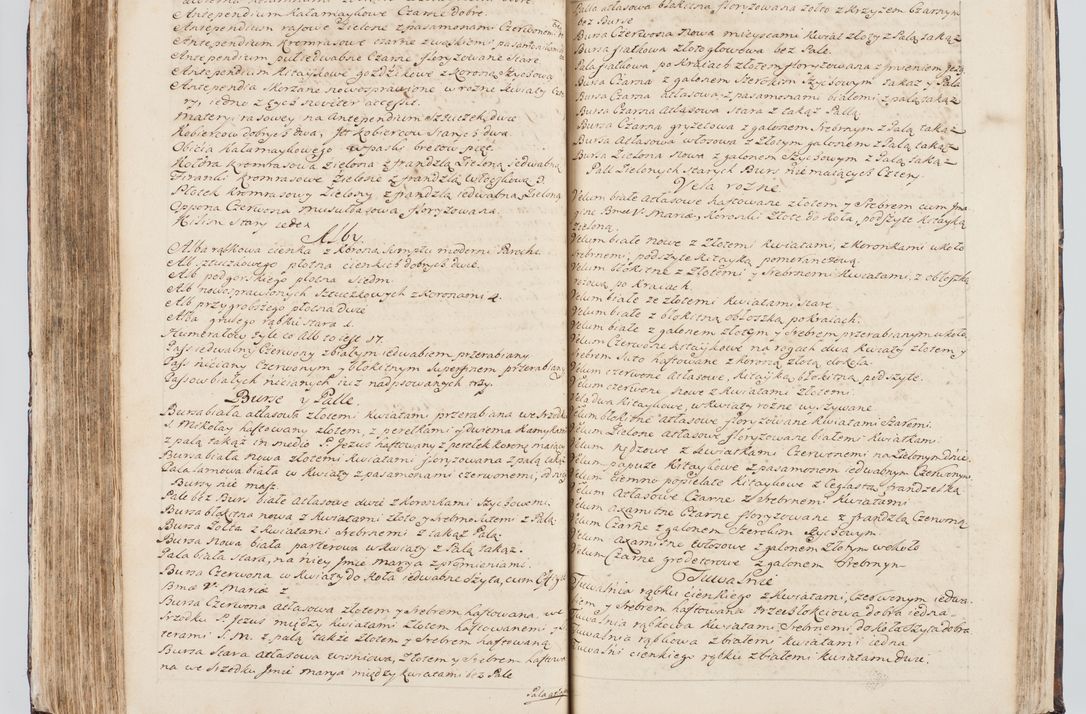 Antependium kałamaykowe Czarne dobre.
Antependium rasowe Zielone z pasamonam Czerwonem
Antependium kromrasowe czarne z wąskiemi pasamonikami
Antependium pułiedwabne Czarne floryzowane Stare.
Antependium Kitaykowe gozdzikowe z Koroną Szychową
Antependia Skorzane nowosprawione w rożne kwiaty
ry, iedno z tych noviter accessit.
Materyi rasowey na Antependium Sztuczek dwie
Kobiercow dobrych dwa, Jtt Kobiercow Starych dwa.
Obicia kałamaykowego w pasy bretow pięć
Kotara kromrasowa zielona z frandzlą Zieloną iedwabną
Firanki kromrasowe Zielone z frandzlą włoczkową 3
Płotek kromrasowy Zielony z frandzlą iedwabną Zieloną
Oppona Czerwona musułbasowa floryzowana.
Kilim Stary ieden
Alby.
Alba rąbkowa cienka z Koroną Sumptu moderni Parochi
Alb sztuczkowego płotna cienkich dobrych dwie.
Alb podgorskiego płotna Siedm.
Alb nowosprawionych Sztuczkowych z Koronami 4.
Alb przygrobszego płotna dwie
Alba grubego rąbku stara 1.
Humerałow tyle co Alb to iest 17.
Pas iedwabny Czerwony z białym iedwabiem przerabiany
Pas niciany Czerwonym y błękitnym Superfinem przerabiany
Pasow białych nicianych iuz nadpsowanych trzy.
Burse y Palle.
Bursa biała atłasowa złotemi kwiatami przerabiana we srzodku
S. Mikołay haftowany złotem, z perełkami y dwiema kamykami
z palą takąż in medio P. Jezus haftowany z perełek koronę maiący
Bursa biała nowa złotemi kwiatami floryzowana z palą takąż
Pala lamowa biała w kwiaty z pasamonami czerwonemi, od niey
Bursy nie masz.
Pale bez Burs białe Atłasowe dwie z koronkami Szychowemi.
Bursa błękitna nowa z kwiatami złoto y srebrno litem z Palą.
Bursa żołta z kwiatami Srebrnemi z takąż Palą.
Bursa nowa biała parterowa w kwiaty z Palą takąż.
Pala biała stara, na niey Jmie Marya z promieniami.
Bursa Czerwona w kwiaty do koła iedwabne szyta, cum Effigie
Bmæ V. Mariæ
Bursa Czerwona atłasowa złotem y srebrem haftowana we
srzodku P. Jezus między kwiatami złotem haftowanemi z li
terami S. M. z palą także złotem y Srebrem haftowaną
Bursa Stara atłasowa wisniowa, złotem y srebrem haftowa
na we srzodku Jmie Marya między kwiatami bez Pale
Pala atłas
Palla atłasowa błękitna floryzowana żołto z krzyżem Czarnym
bez Burse
Bursa Czerwona nowa mieyscami kwiat złoty z Palą takąż
Bursa fiałkowa złotogłowowa bez Pale.
Pala fiałkowa po kraiach złotem floryzowana z Jmieniem Jezus
Bursa Czarna z galonem szerokim Szychowym takaż y Pala
Bursa Czarna Atłasowa z pasamonami białemi z palą takąż
Bursa Czarna Atłasowa Stara z takąż Pallą
Bursa Czarna gryzetowa z galonem srebrnym z Palą takąż
Bursa Atłasowa włosowa z złotym galonem z Palą takąż
Bursa Zielona nowa z galonem szychowym z Palą takąż
Pall Zielonych starych Burs niemaiących Cztery.
Vela rozne
Velum białe Atłasowe haftowane złotem y srebrem cum Jma
gine Bmæ V. Mariæ, Koronki złote do koła, podszyte kitayką
zieloną.
Velum białe nowe z złotemi kwiatami, z koronkami wkoło
srebrnemi, podszyte kitayką pomorańczową.
Velum błękitne z złotemi y srebrnemi kwiatami, z obłoszką
rożową po kraiach.
Velum białe ze złotemi kwiatami stare.
Velum białe z błękitną obłoszką po kraiach.
Velum białe z galonem złotym y srebrem przerabianym w koło.
Velum Czerwone kitaykowe na rogach dwa kwiaty złotem y
srebrem suto haftowane z koroną złotą dokoła
Velum czerwone Atłasowe, Kitayką błękitną podszyte.
Velum czerwone nowe z kwiatami złotemi.
Vela dwa kitaykowe, w kwiaty rożne wyszywane
Velum błękitne atłasowe floryzowane kwiatami czarnemi.
Velum Zielone atłasowe floryzowane białemi kwiatkami.
Velum rządzowe z kwiatkami Czerwonemi na Zielonym dnie.
Velum papuze kitaykowe z pasamonem iedwabnym Czerwonym.
Velum ciemno popielate kitaykowe z Ceglastą frandzelką
Velum Atłasowe Czarne z srebrnemi kwiatami
Velum axamitne Czarne floryzowane z frandzlą Czerwoną
Velum Czarne z galonem szerokim szychowym.
Velum axamitne włosowe z galonem złotym wkoło
Velum Czarne gredeterowe z galonem srebrnym
Tuwalnie
Tuwalnia rąbku cienkiego z kwiatami, Czerwonym iedwa
biem y srebrem haftowana trzechłokciowa dobra iedna
Tuwalnia rąbkowa kwiatami srebrnemi do koła szyta dobra
Tuwalnia rąbkowa z białemi kwiatami iedna
Tuwalni cienkiego rąbku z białemi kwiatami dwie.